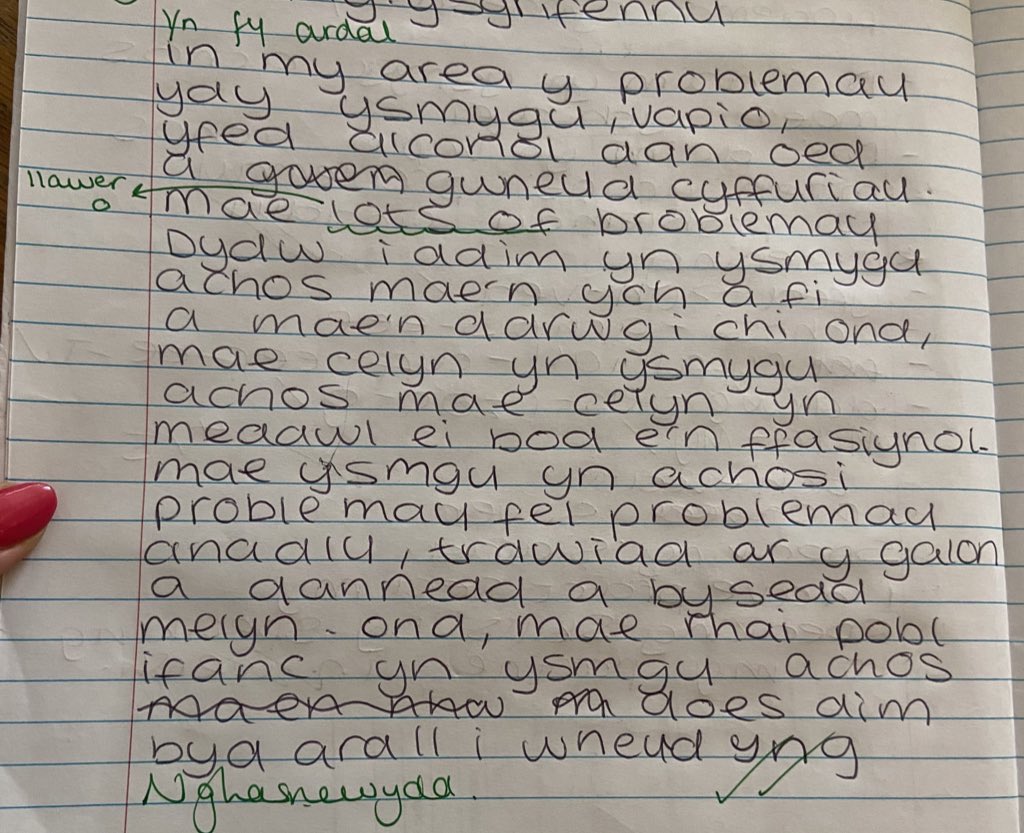 ysgrifennu
Yn fy ardal
in my area y problemau
yay ysmygu, vapio,
yfed alcohol dan oed
a guneud cyffuriau.
llawer
o
mae lots of broblemau
Dydw i ddim yn ysmygu
achos mae'n ych a fi
a mae'n ddrwg i chi ond,
mae celyn yn ysmygu
achos mae celyn yn
meddwl ei bod e'n ffasiynol.
mae ysmgu yn achosi
problemau fel problemau
anadlu, trawiad ar y galon
a dannedd a bysedd
melyn. ond, mae rhai pobl
ifanc yn ysmgu achos
does dim
byd arall i wneud yng
Nghasnewydd.